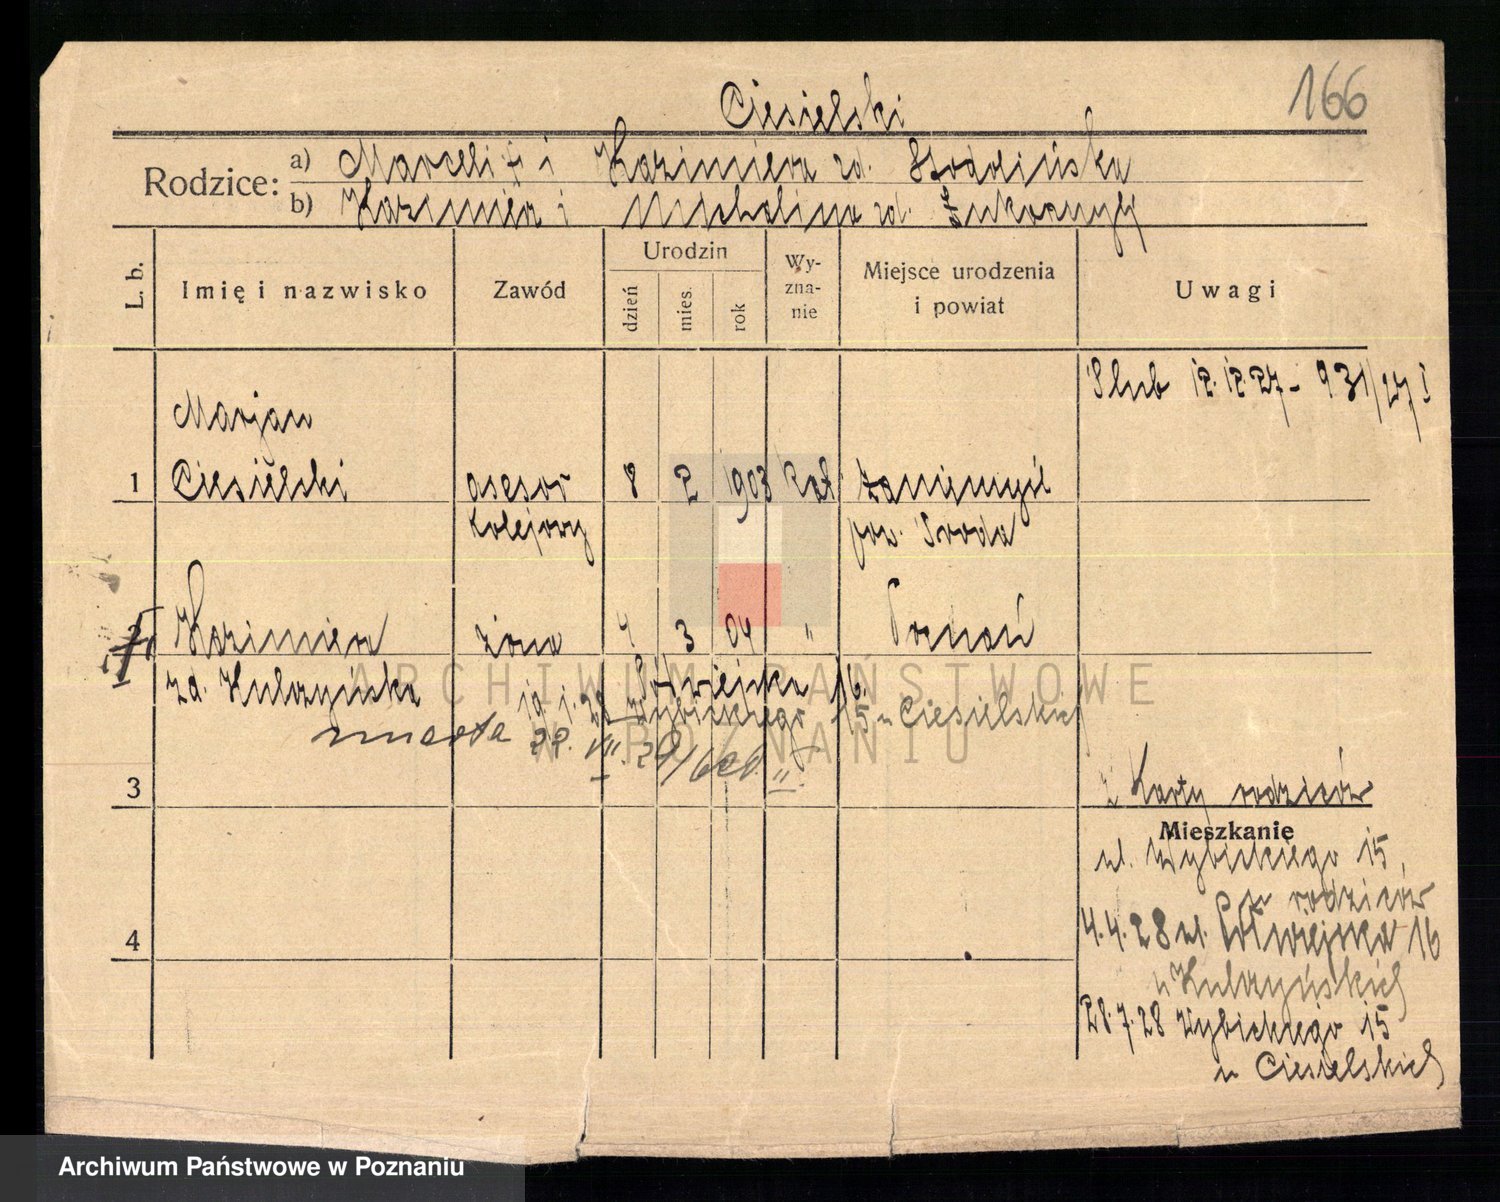 166
Ciesielski
Rodzice:
a) Marceli i Kazimiera zd. Stodolińska
b) Kazimierz i Michalina zd.
L. b.
Imię i nazwisko
Zawód
Urodzin
dzień
mies.
rok
Wy-
zna-
nie
Miejsce urodzenia
i powiat
Uwagi
Slub 12.12.27 - 931/27 I
Marjan
1 Ciesielski asesor 8 2 1903 kat. Zaniemyśl
kolejowy pow. Sroda
Kazimiera żona 4 3 04 " Poznań
zd. Kulczyńska Półwiejska 16.
19.1.28 Wybickiego 15 u Ciesielskich
zmarła 22. VII. 29
3
z Karty rodziców
Mieszkanie
ul. Wybickiego 15,
rodziców
4.4.28 ul. Półwiejska 16
u Kulczyńskich
28.7.28 Wybickiego 15
u Ciesielskich
4
ARCHIWUM PAŃSTWOWE
W POZNANIU
Archiwum Państwowe w Poznaniu